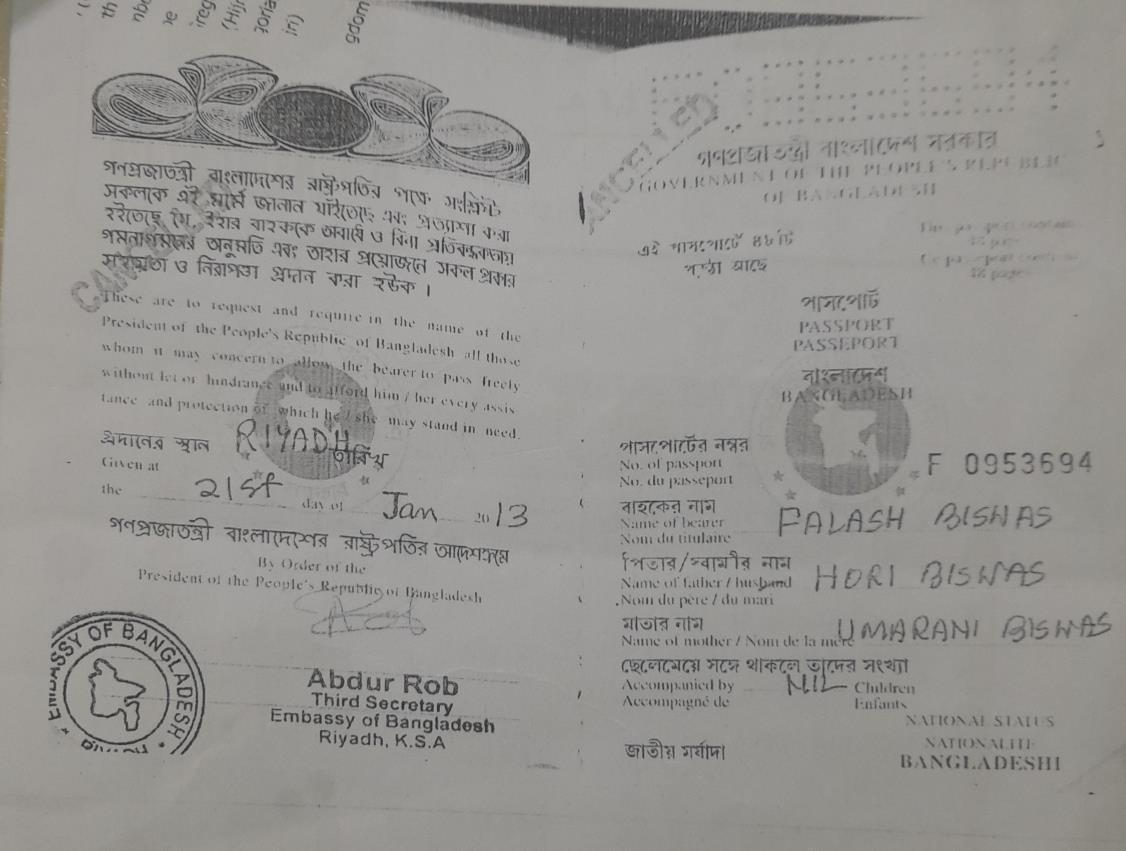 CANCELLED
গণপ্রজাতন্ত্রী বাংলাদেশের রাষ্ট্রপতির পক্ষে সংশ্লিষ্ট
সকলকে এই মর্মে জানান যাইতেছে এবং প্রত্যাশা করা
হইতেছে যে, ইহার বাহককে অবাধে ও বিনা প্রতিবন্ধকতায়
গমনাগমনের অনুমতি এবং তাহার প্রয়োজনে সকল প্রকার
সহায়তা ও নিরাপত্তা প্রদান করা হউক ।
These are to request and require in the name of the
President of the People's Republic of Bangladesh all those
whom it may concern to allow the bearer to pass freely
without let or hindrance and to afford him / her every assis
tance and protection of which he / she may stand in need.
প্রদানের স্থান RIYADH তারিখ
Given at
the 21st day of Jan 2013
গণপ্রজাতন্ত্রী বাংলাদেশের রাষ্ট্রপতির আদেশক্রমে
By Order of the
President of the People's Republic of Bangladesh
EMBASSY OF BANGLADESH
Abdur Rob
Third Secretary
Embassy of Bangladesh
Riyadh, K.S.A
CANCELLED
গণপ্রজাতন্ত্রী বাংলাদেশ সরকার
GOVERNMENT OF THE PEOPLE'S REPUBLIC
OF BANGLADESH
এই পাসপোর্টে ৪৮টি
পৃষ্ঠা আছে
পাসপোর্ট
PASSPORT
PASSEPORT
বাংলাদেশ
BANGLADESH
পাসপোর্টের নম্বর
No. of passport F 0953694
No. du passeport
বাহকের নাম
Name of bearer PALASH BISWAS
Nom du titulaire
পিতার/স্বামীর নাম
Name of father / husband HORI BISWAS
Nom du père / du mari
মাতার নাম
Name of mother / Nom de la mère UMARANI BISWAS
ছেলেমেয়ে সঙ্গে থাকলে তাদের সংখ্যা
Accompanied by NIL Children
Accompagné de Enfants
NATIONAL STATUS
NATIONALITE
জাতীয় মর্যাদা BANGLADESHI